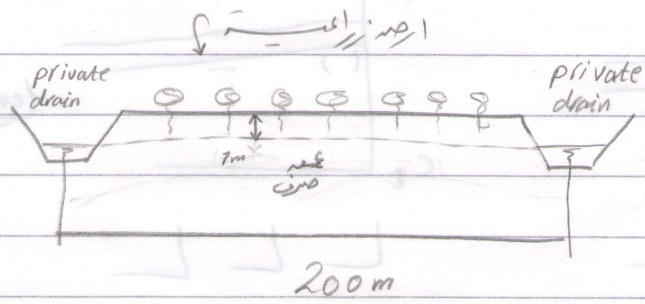 ارض زراعية
private
drain
private
drain
1m
عمق
صرف
200m